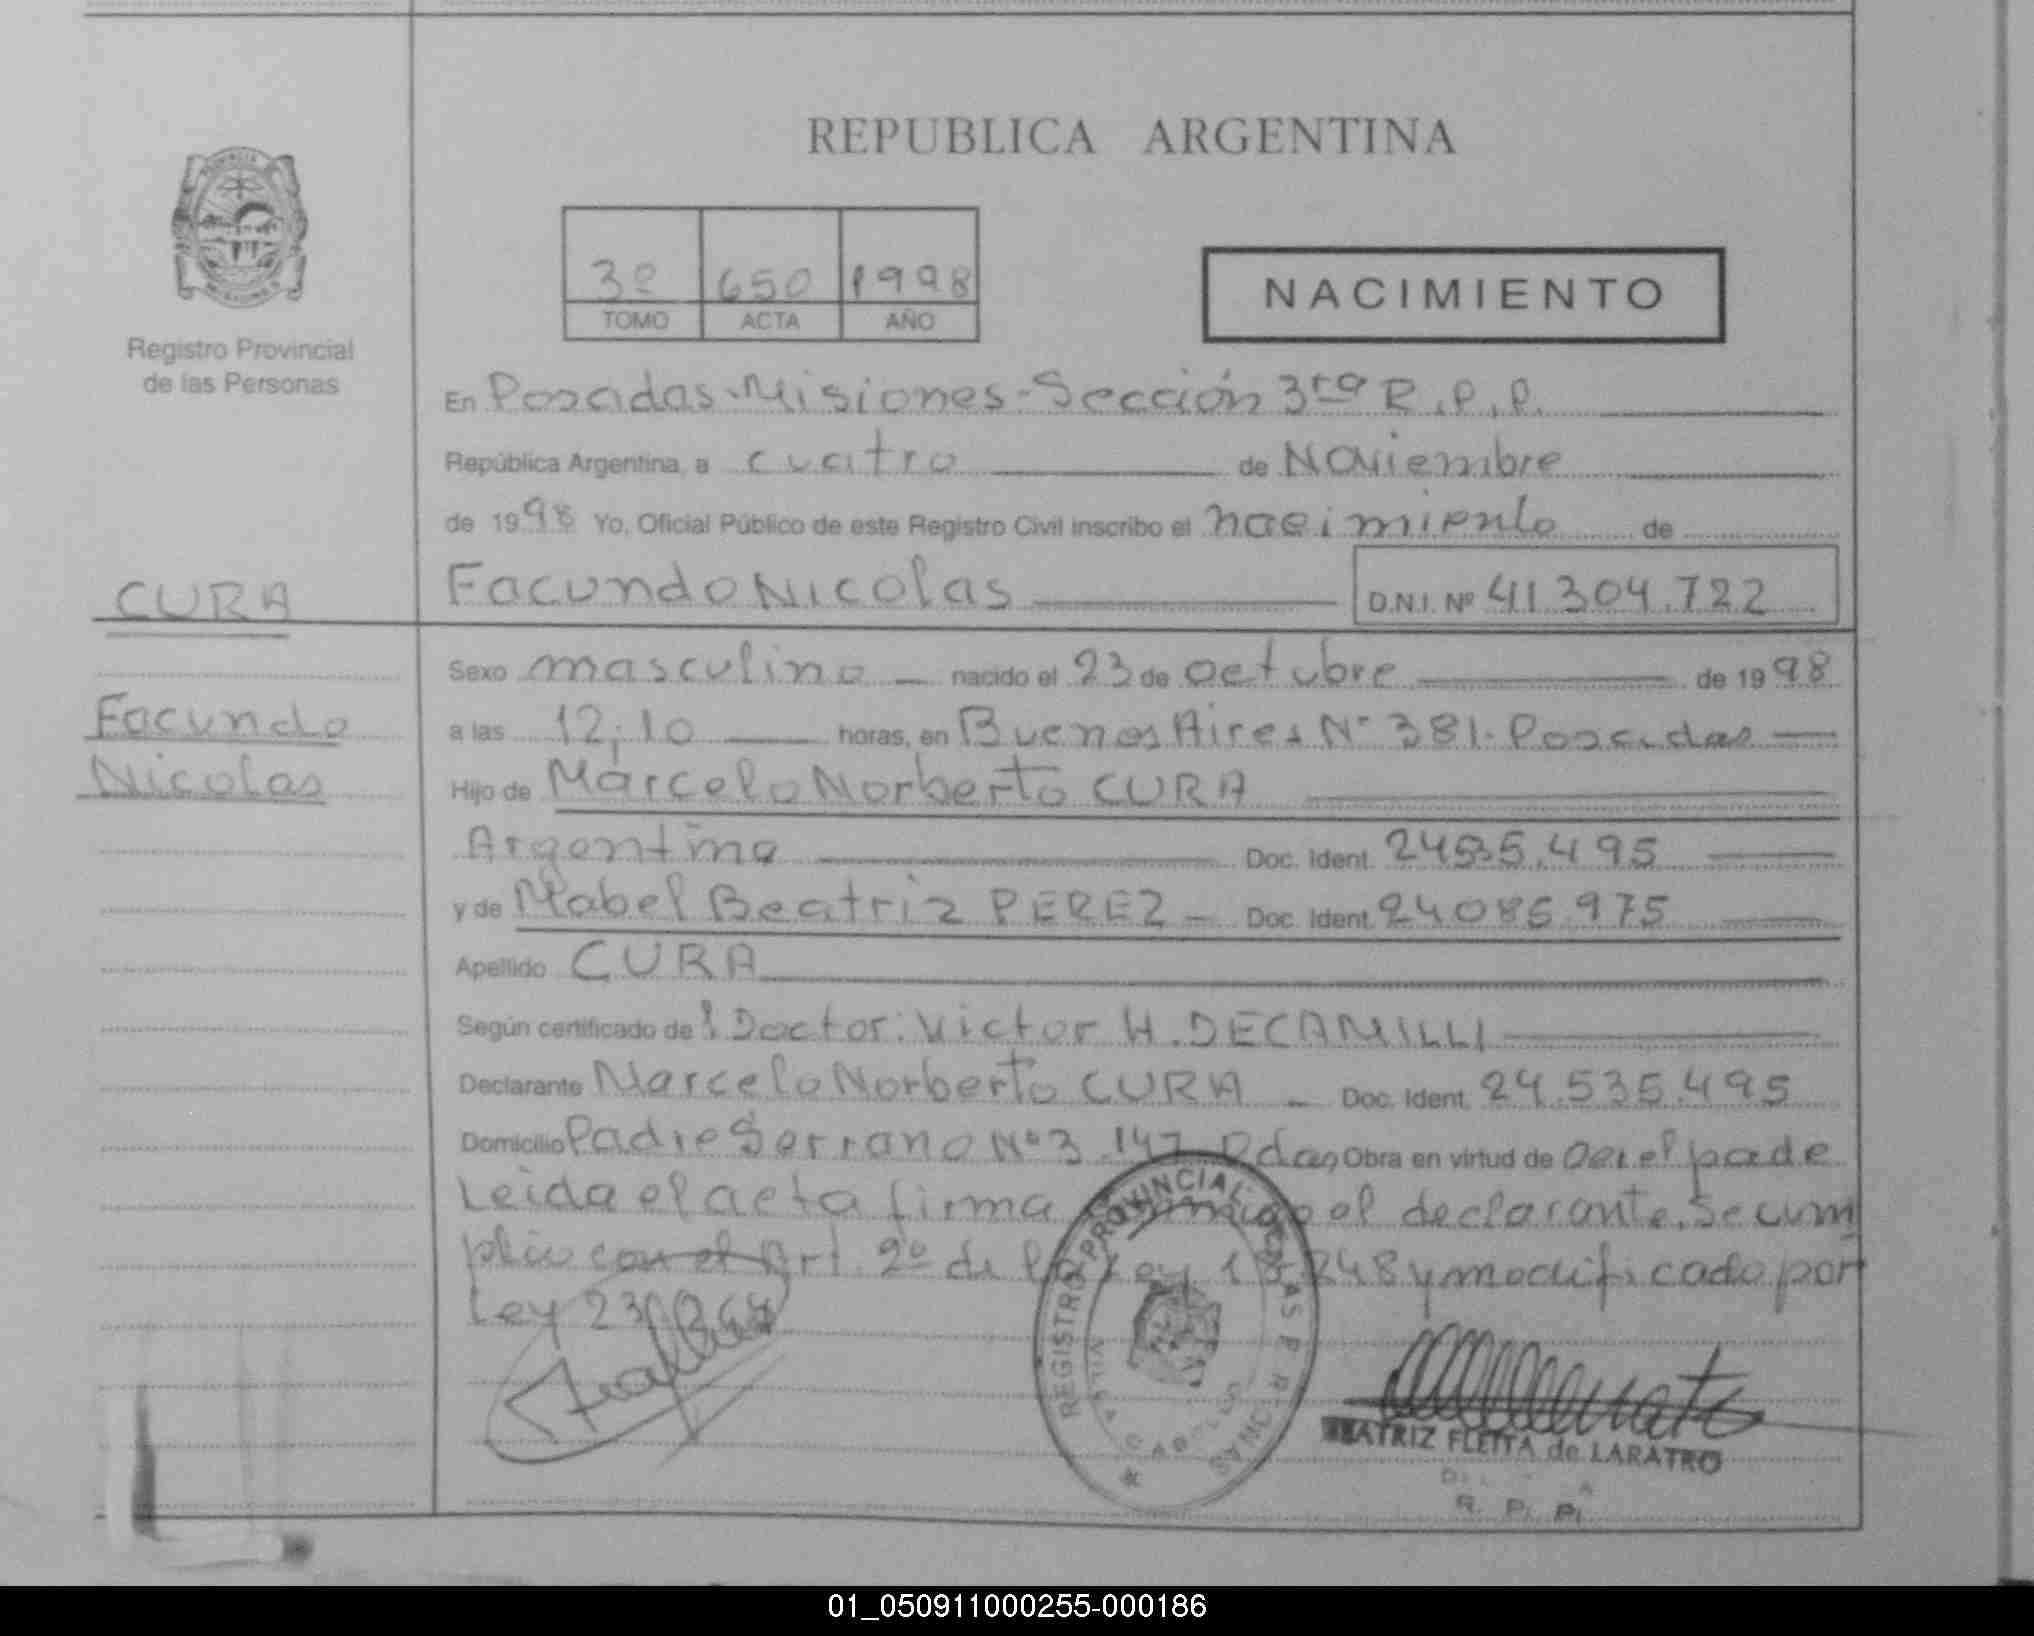 REPUBLICA ARGENTINA
Registro Provincial
de las Personas
3º 650 1998
TOMO ACTA AÑO
NACIMIENTO
En Posadas-Misiones-Sección 3ra R.P.P.
República Argentina, a cuatro de Noviembre
de 1998 Yo, Oficial Público de este Registro Civil inscribo el nacimiento de
CURA
Facundo Nicolas D.N.I. Nº 41.304.722
Sexo masculino nacido el 23 de octubre de 1998
Facundo
Nicolas
a las 12,10 horas, en Buenos Aires Nº 381. Posadas
Hijo de Marcelo Norberto CURA
Argentina Doc. Ident. 24535.495
y de Mabel Beatriz PEREZ Doc. Ident. 24086.975
Apellido CURA
Según certificado del Doctor: Victor H. DECAMILLI
Declarante Marcelo Norberto CURA Doc. Ident. 24.535.495
Domicilio Padre Serrano Nº 3.147 Pdas, Obra en virtud de
Leida el acta firma conmigo el declarante. Se cum
plio con el Art. 2º de la Ley 18.248 y modificado por
Ley 23
REGISTRO PROVINCIAL DE LAS PERSONAS
VILLA CABELLO
BEATRIZ FLEITA de LARATRO
R. P. P.
01_050911000255-000186